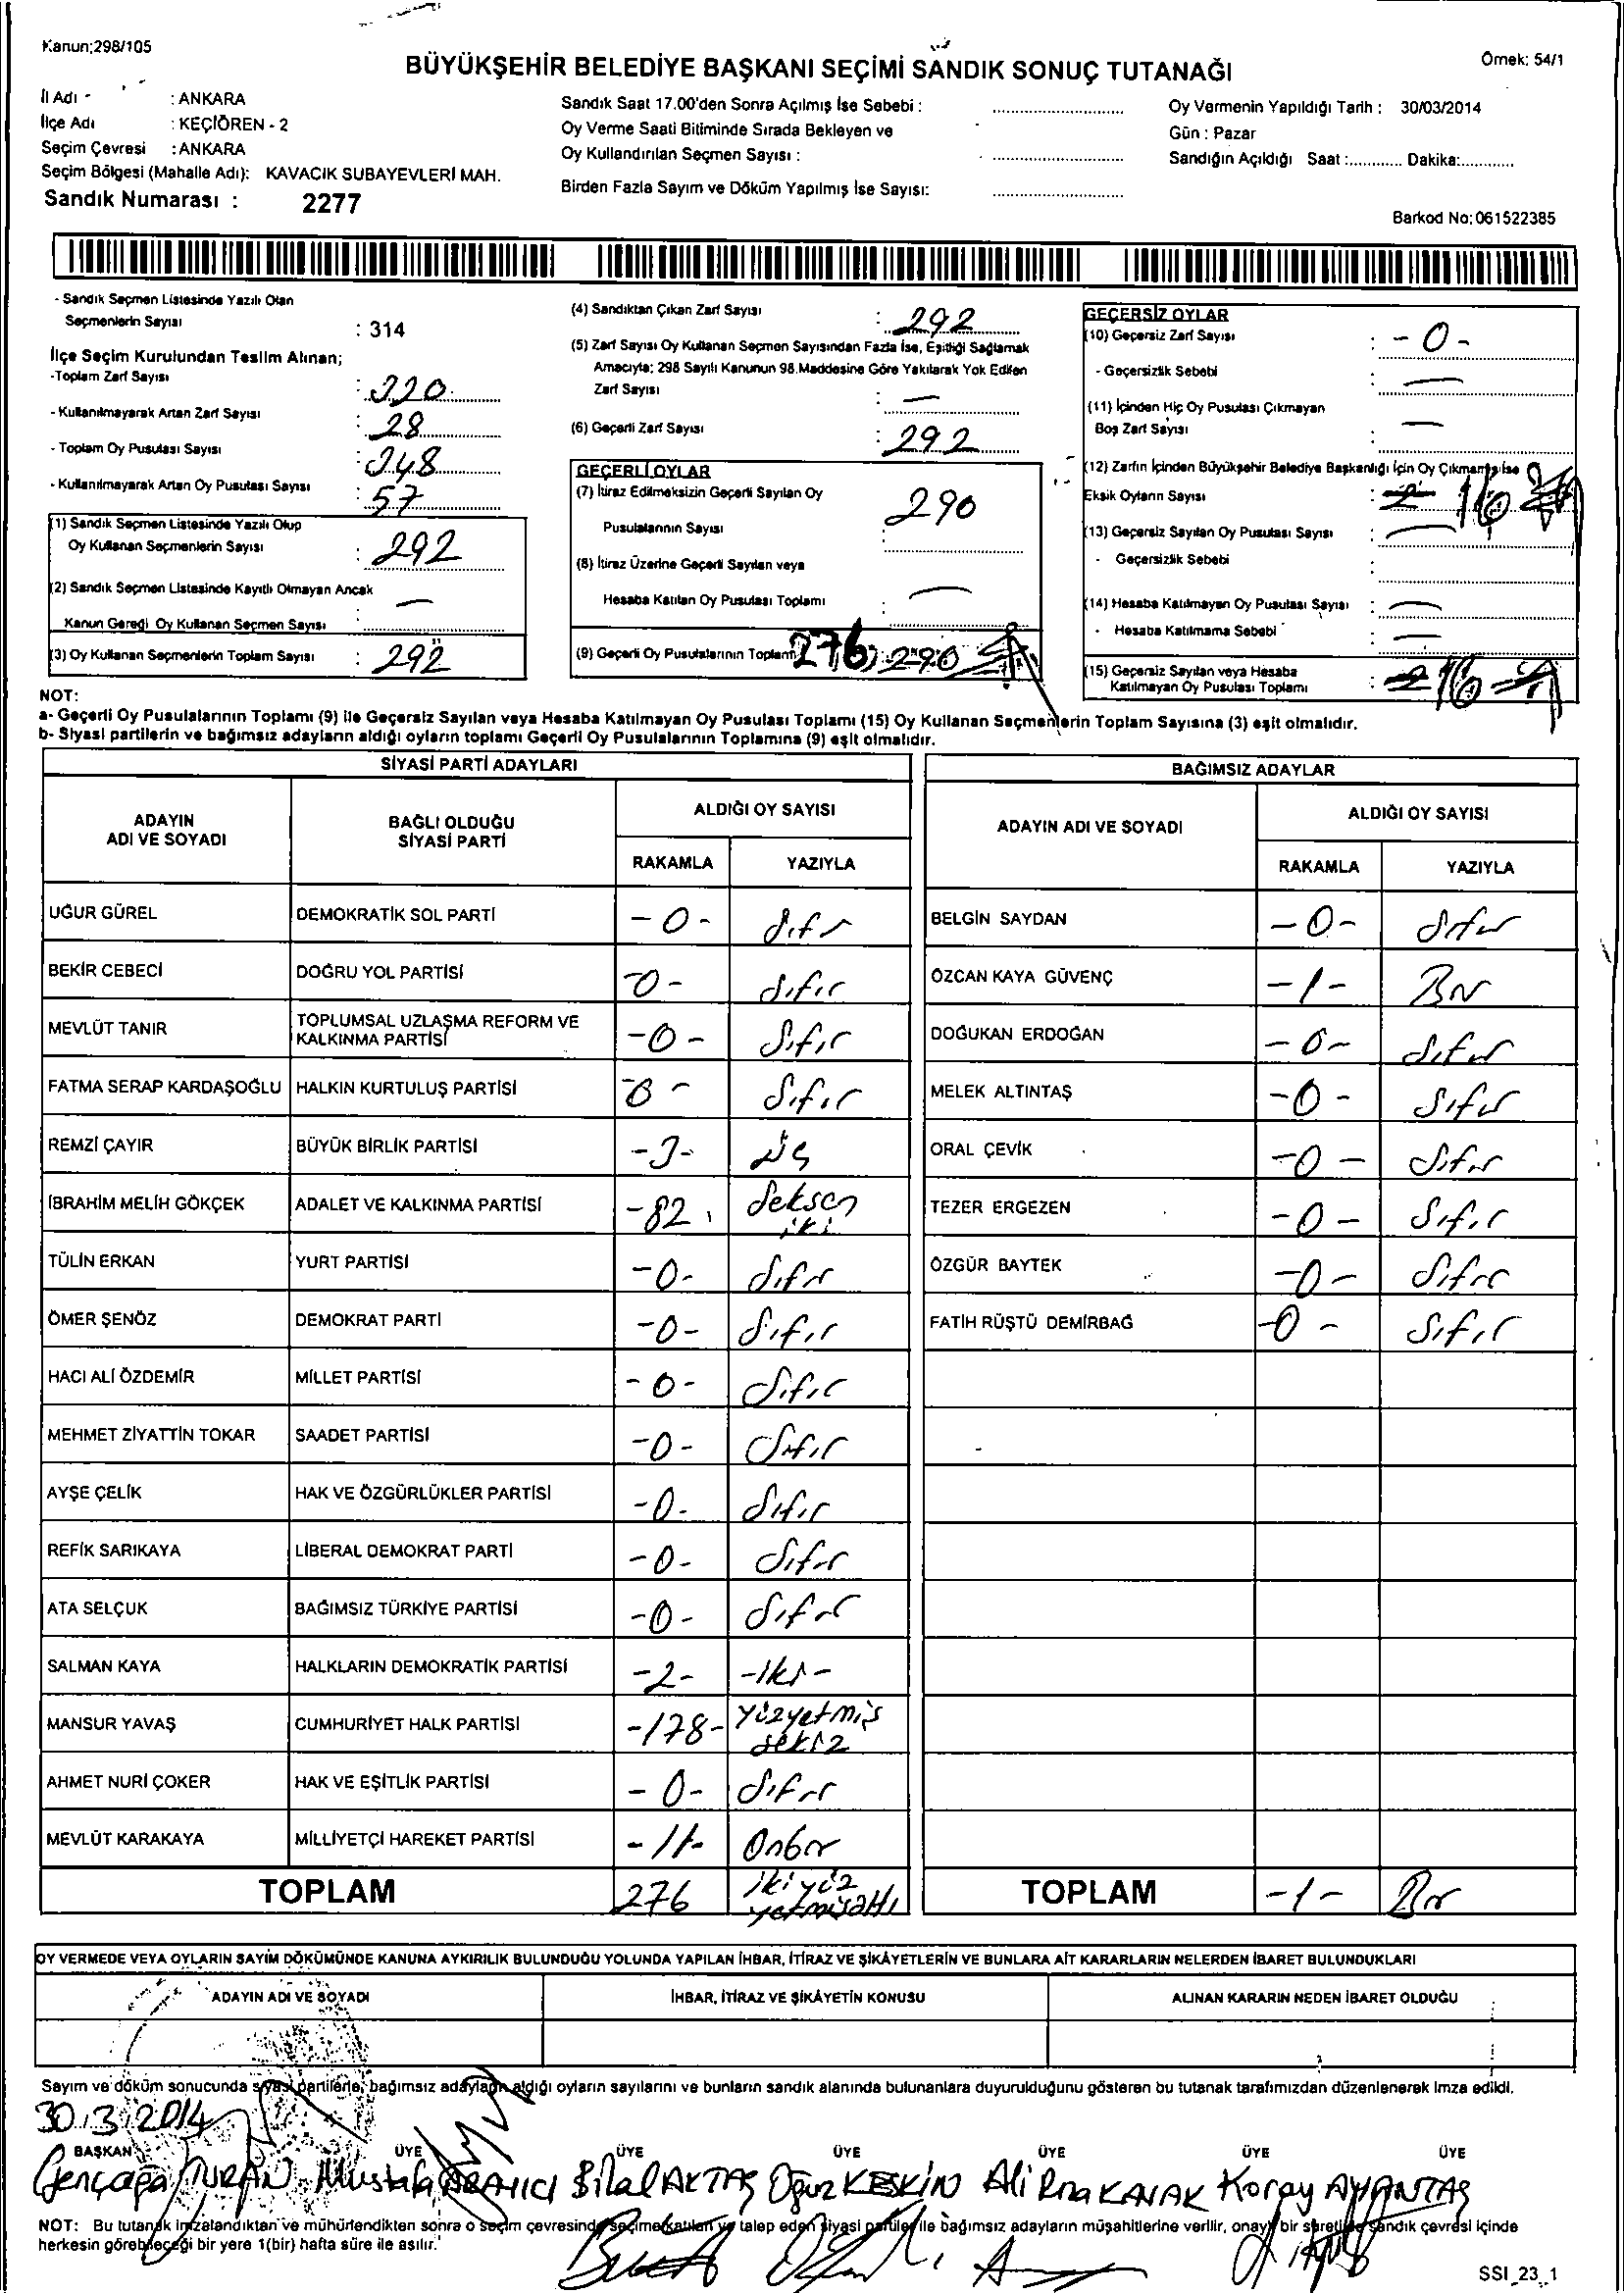 Kanun;298/105
Örnek: 54/1
BÜYÜKŞEHİR BELEDİYE BAŞKANI SEÇİMİ SANDIK SONUÇ TUTANAĞI
İl Adı : ANKARA
İlçe Adı : KEÇİÖREN - 2
Seçim Çevresi : ANKARA
Seçim Bölgesi (Mahalle Adı): KAVACIK SUBAYEVLERİ MAH.
Sandık Numarası : 2277
Sandık Saat 17.00'den Sonra Açılmış İse Sebebi :
Oy Verme Saati Bitiminde Sırada Bekleyen ve
Oy Kullandırılan Seçmen Sayısı :
Birden Fazla Sayım ve Döküm Yapılmış İse Sayısı:
Oy Vermenin Yapıldığı Tarih : 30/03/2014
Gün : Pazar
Sandığın Açıldığı Saat :............ Dakika:............
Barkod No: 061522385
- Sandık Seçmen Listesinde Yazılı Olan
Seçmenlerin Sayısı : 314
İlçe Seçim Kurulundan Teslim Alınan;
-Toplam Zarf Sayısı : 320
- Kullanılmayarak Artan Zarf Sayısı : 28
- Toplam Oy Pusulası Sayısı : 348
- Kullanılmayarak Artan Oy Pusulası Sayısı : 57
(1) Sandık Seçmen Listesinde Yazılı Olup
Oy Kullanan Seçmenlerin Sayısı : 292
(2) Sandık Seçmen Listesinde Kayıtlı Olmayan Ancak
Kanun Gereği Oy Kullanan Seçmen Sayısı : —
(3) Oy Kullanan Seçmenlerin Toplam Sayısı : 292
(4) Sandıktan Çıkan Zarf Sayısı : 292
(5) Zarf Sayısı Oy Kullanan Seçmen Sayısından Fazla İse, Eşitliği Sağlamak
Amacıyla; 298 Sayılı Kanunun 98.Maddesine Göre Yakılarak Yok Edilen
Zarf Sayısı : —
(6) Geçerli Zarf Sayısı : 292
GEÇERLİ OYLAR
(7) İtiraz Edilmeksizin Geçerli Sayılan Oy
Pusulalarının Sayısı : 290
(8) İtiraz Üzerine Geçerli Sayılan veya
Hesaba Katılan Oy Pusulası Toplamı : —
(9) Geçerli Oy Pusulalarının Toplamı 276 290
GEÇERSİZ OYLAR
(10) Geçersiz Zarf Sayısı : - 0 -
- Geçersizlik Sebebi : —
(11) İçinden Hiç Oy Pusulası Çıkmayan
Boş Zarf Sayısı : —
(12) Zarfın İçinden Büyükşehir Belediye Başkanlığı İçin Oy Çıkmamış İse
Eksik Oyların Sayısı : 2 16
(13) Geçersiz Sayılan Oy Pusulası Sayısı : —
- Geçersizlik Sebebi :
(14) Hesaba Katılmayan Oy Pusulası Sayısı : —
- Hesaba Katılmama Sebebi : —
(15) Geçersiz Sayılan veya Hesaba
Katılmayan Oy Pusulası Toplamı : 2 16
NOT:
a- Geçerli Oy Pusulalarının Toplamı (9) ile Geçersiz Sayılan veya Hesaba Katılmayan Oy Pusulası Toplamı (15) Oy Kullanan Seçmenlerin Toplam Sayısına (3) eşit olmalıdır.
b- Siyasi partilerin ve bağımsız adayların aldığı oyların toplamı Geçerli Oy Pusulalarının Toplamına (9) eşit olmalıdır.
SİYASİ PARTİ ADAYLARI
ADAYIN ADI VE SOYADI
BAĞLI OLDUĞU SİYASİ PARTİ
ALDIĞI OY SAYISI
RAKAMLA YAZIYLA
UĞUR GÜREL DEMOKRATİK SOL PARTİ - 0 - Sıfır
BEKİR CEBECİ DOĞRU YOL PARTİSİ -0- Sıfır
MEVLÜT TANIR TOPLUMSAL UZLAŞMA REFORM VE KALKINMA PARTİSİ -0- Sıfır
FATMA SERAP KARDAŞOĞLU HALKIN KURTULUŞ PARTİSİ -0- Sıfır
REMZİ ÇAYIR BÜYÜK BİRLİK PARTİSİ -3- üç
İBRAHİM MELİH GÖKÇEK ADALET VE KALKINMA PARTİSİ -82 Seksen iki
TÜLİN ERKAN YURT PARTİSİ -0- Sıfır
ÖMER ŞENÖZ DEMOKRAT PARTİ -0- Sıfır
HACI ALİ ÖZDEMİR MİLLET PARTİSİ -0- Sıfır
MEHMET ZİYATTİN TOKAR SAADET PARTİSİ -0- Sıfır
AYŞE ÇELİK HAK VE ÖZGÜRLÜKLER PARTİSİ -0- Sıfır
REFİK SARIKAYA LİBERAL DEMOKRAT PARTİ -0- Sıfır
ATA SELÇUK BAĞIMSIZ TÜRKİYE PARTİSİ -0- Sıfır
SALMAN KAYA HALKLARIN DEMOKRATİK PARTİSİ -2- -iki-
MANSUR YAVAŞ CUMHURİYET HALK PARTİSİ -178- yüzyetmiş sekiz
AHMET NURİ ÇOKER HAK VE EŞİTLİK PARTİSİ - 0- Sıfır
MEVLÜT KARAKAYA MİLLİYETÇİ HAREKET PARTİSİ - 11- Onbir
TOPLAM 276 ikiyüz yetmişaltı
BAĞIMSIZ ADAYLAR
ADAYIN ADI VE SOYADI
ALDIĞI OY SAYISI
RAKAMLA YAZIYLA
BELGİN SAYDAN -0- Sıfır
ÖZCAN KAYA GÜVENÇ -1- Bir
DOĞUKAN ERDOĞAN -0- Sıfır
MELEK ALTINTAŞ -0- Sıfır
ORAL ÇEVİK -0- Sıfır
TEZER ERGEZEN -0- Sıfır
ÖZGÜR BAYTEK -0- Sıfır
FATİH RÜŞTÜ DEMİRBAĞ -0- Sıfır
TOPLAM -1- Bir
OY VERMEDE VEYA OYLARIN SAYIM DÖKÜMÜNDE KANUNA AYKIRILIK BULUNDUĞU YOLUNDA YAPILAN İHBAR, İTİRAZ VE ŞİKÂYETLERİN VE BUNLARA AİT KARARLARIN NELERDEN İBARET BULUNDUKLARI
ADAYIN ADI VE SOYADI İHBAR, İTİRAZ VE ŞİKÂYETİN KONUSU ALINAN KARARIN NEDEN İBARET OLDUĞU
Sayım ve döküm sonucunda siyasi partilerle, bağımsız adayların aldığı oyların sayılarını ve bunların sandık alanında bulunanlara duyurulduğunu gösteren bu tutanak tarafımızdan düzenlenerek imza edildi.
30.3.2014
BAŞKAN ÜYE ÜYE ÜYE ÜYE ÜYE ÜYE
Gençağa TURAN Mustafa Bilal AKTAŞ Oğuz KESKİN Ali Koray
NOT: Bu tutanak imzalandıktan ve mühürlendikten sonra o seçim çevresinde seçime katılan ve talep eden siyasi partiler ile bağımsız adayların müşahitlerine verilir, onaylı bir sureti de sandık çevresi içinde
herkesin görebileceği bir yere 1(bir) hafta süre ile asılır.
SSI_23_1